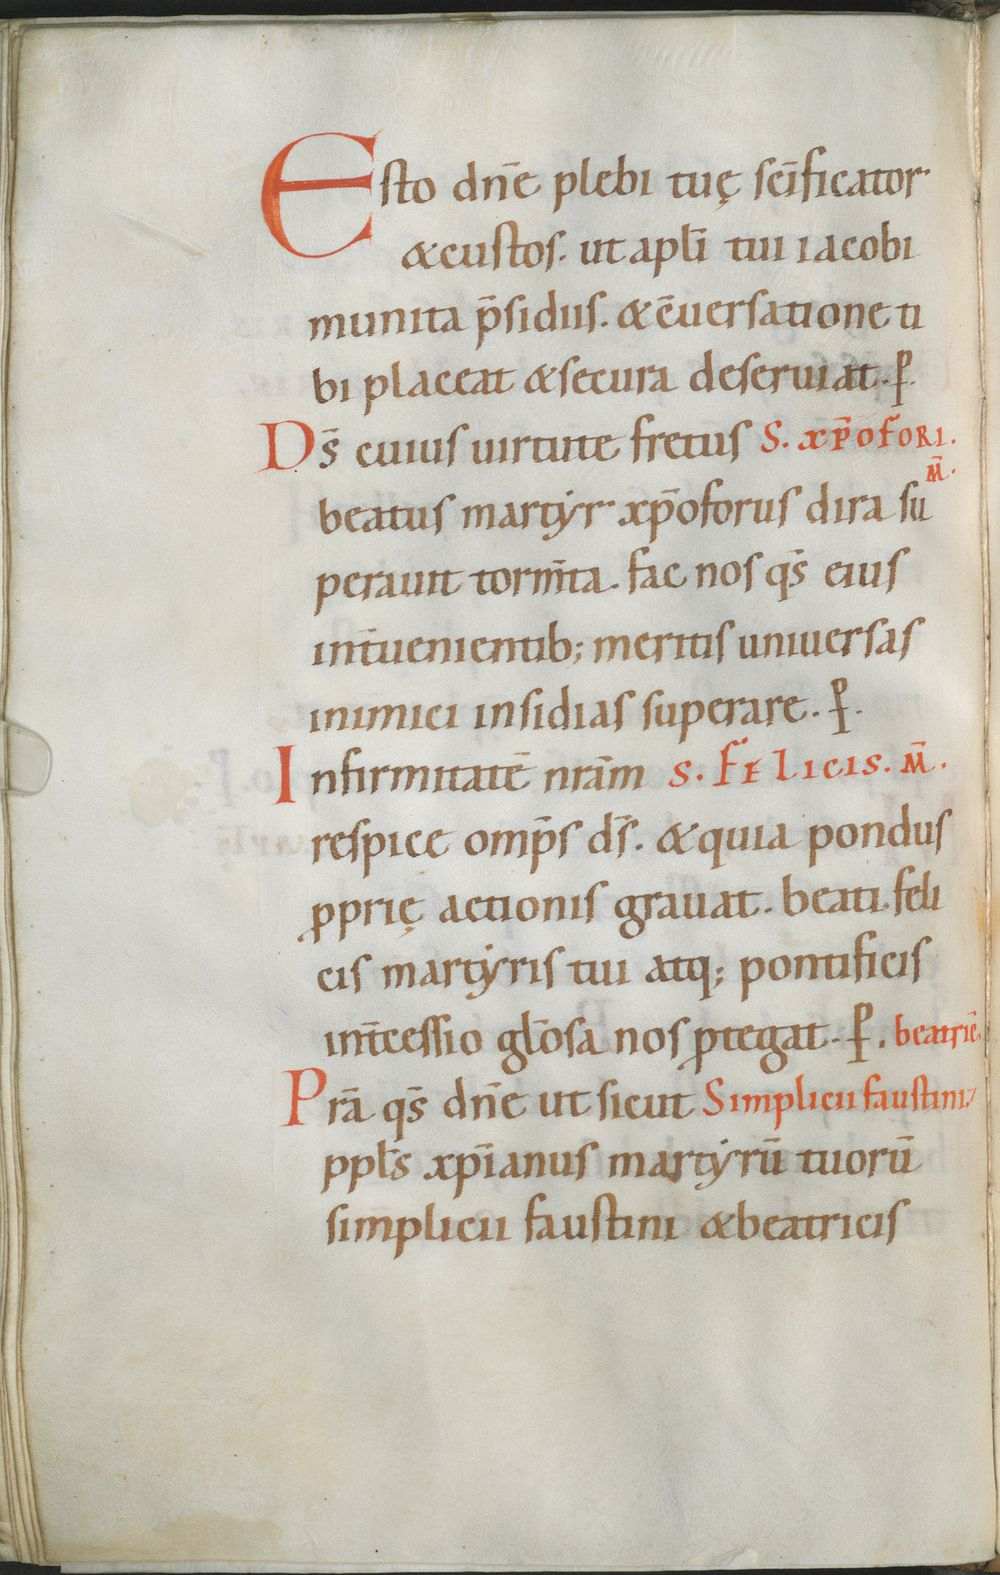 Esto dn̄e plebi tuę sc̄ificator
&custos. ut apl̄i tui iacobi
munita p̄sidiis. &c̄uersatione ti
bi placeat &secura deseruiat. ꝑ.
Ds̄ cuius uirtute fretus S. xp̄ofori.
m̄.
beatus martyr xp̄oforus dira su
perauit torm̄ta. fac nos qs̄ eius
int̄uenientib; meritis uniuersas
inimici insidias superare. ꝑ.
Infirmitatē nrām S. felicis. m̄.
respice omp̄s ds̄. &quia pondus
ꝓprię actionis grauat. beati feli
cis martyris tui atq; pontificis
int̄cessio gl̄osa nos ꝓtegat. ꝑ. beatric̄.
Prā qs̄ dn̄e ut sicut Simplicii faustini 7
ppl̄s xp̄ianus martyrū tuorū
simplicii faustini &beatricis